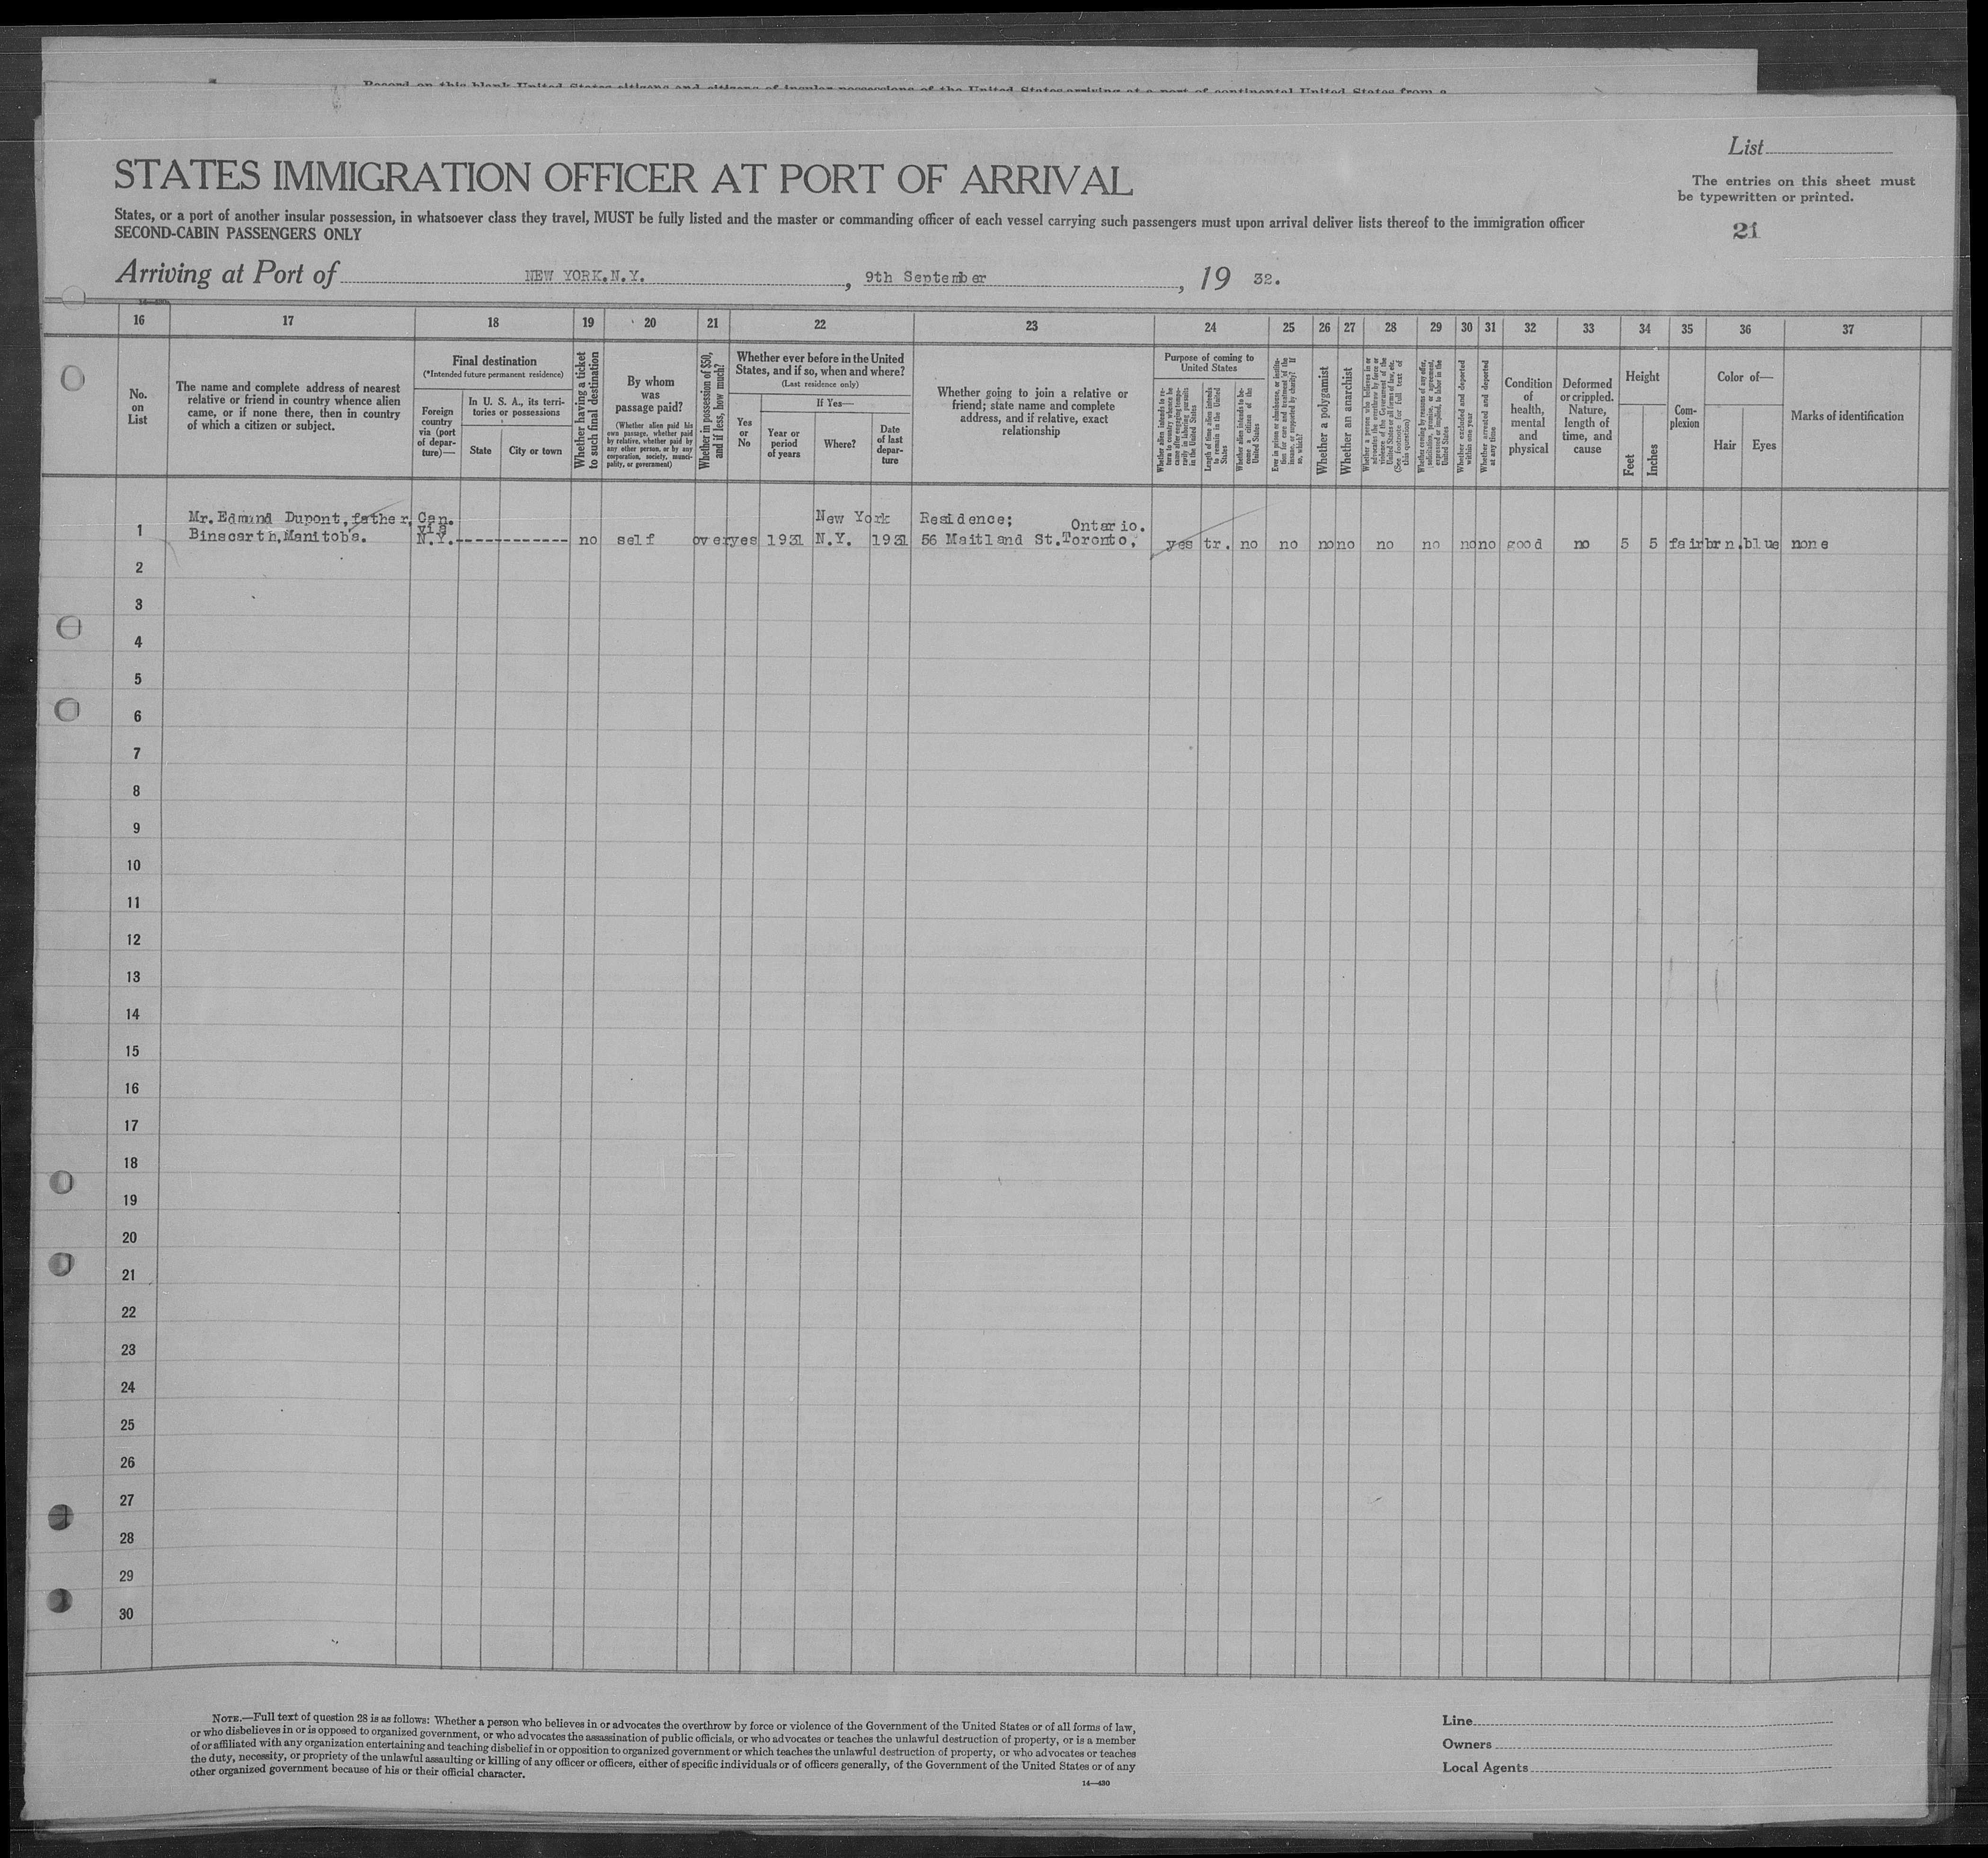 Record on this blank United States citizens and citizens of insular possessions of the United States arriving at a port of continental United States from a
List
STATES IMMIGRATION OFFICER AT PORT OF ARRIVAL
The entries on this sheet must
be typewritten or printed.
States, or a port of another insular possession, in whatsoever class they travel, MUST be fully listed and the master or commanding officer of each vessel carrying such passengers must upon arrival deliver lists thereof to the immigration officer
SECOND-CABIN PASSENGERS ONLY
21
Arriving at Port of NEW YORK.N.Y. , 9th September , 19 32.
16 17 18 19 20 21 22 23 24 25 26 27 28 29 30 31 32 33 34 35 36 37
No.
on
List
The name and complete address of nearest
relative or friend in country whence alien
came, or if none there, then in country
of which a citizen or subject.
Final destination
(*Intended future permanent residence)
Foreign
country
via (port
of depar-
ture)—
In U. S. A., its terri-
tories or possessions
State
City or town
Whether having a ticket
to such final destination
By whom
was
passage paid?
(Whether alien paid his
own passage, whether paid
by relative, whether paid by
any other person, or by any
corporation, society, munici-
pality, or government)
Whether in possession of $50,
and if less, how much?
Whether ever before in the United
States, and if so, when and where?
(Last residence only)
Yes
or
No
If Yes—
Year or
period
of years
Where?
Date
of last
depar-
ture
Whether going to join a relative or
friend; state name and complete
address, and if relative, exact
relationship
Purpose of coming to
United States
Whether alien intends to re-
turn to country whence he
came after engaging tempo-
rarily in laboring pursuits
in the United States
Length of time alien intends
to remain in the United
States
Whether alien intends to be-
come a citizen of the
United States
Ever in prison or almshouse, or institu-
tion for care and treatment of the
insane, or supported by charity? If
so, which?
Whether a polygamist
Whether an anarchist
Whether a person who believes in or
advocates the overthrow by force or
violence of the Government of the
United States or all forms of law, etc.
(See footnote for full text of
this question)
Whether coming by reasons of any offer,
solicitation, promise, or agreement,
expressed or implied, to labor in the
United States
Whether excluded and deported
within one year
Whether arrested and deported
at any time
Condition
of
health,
mental
and
physical
Deformed
or crippled.
Nature,
length of
time, and
cause
Height
Feet
Inches
Com-
plexion
Color of—
Hair
Eyes
Marks of identification
Mr.Edmund Dupont,father, Can. New York Residence; Ontario.
via
1 Binscarth,Manitoba. N.Y.------------ no self over yes 1931 N.Y. 1931 56 Maitland St.Toronto, yes tr. no no no no no no no no good no 5 5 fair brn. blue none
2
3
4
5
6
7
8
9
10
11
12
13
14
15
16
17
18
19
20
21
22
23
24
25
26
27
28
29
30
NOTE.—Full text of question 28 is as follows: Whether a person who believes in or advocates the overthrow by force or violence of the Government of the United States or of all forms of law,
or who disbelieves in or is opposed to organized government, or who advocates the assassination of public officials, or who advocates or teaches the unlawful destruction of property, or is a member
of or affiliated with any organization entertaining and teaching disbelief in or opposition to organized government or which teaches the unlawful destruction of property, or who advocates or teaches
the duty, necessity, or propriety of the unlawful assaulting or killing of any officer or officers, either of specific individuals or of officers generally, of the Government of the United States or of any
other organized government because of his or their official character.
14—430
Line
Owners
Local Agents